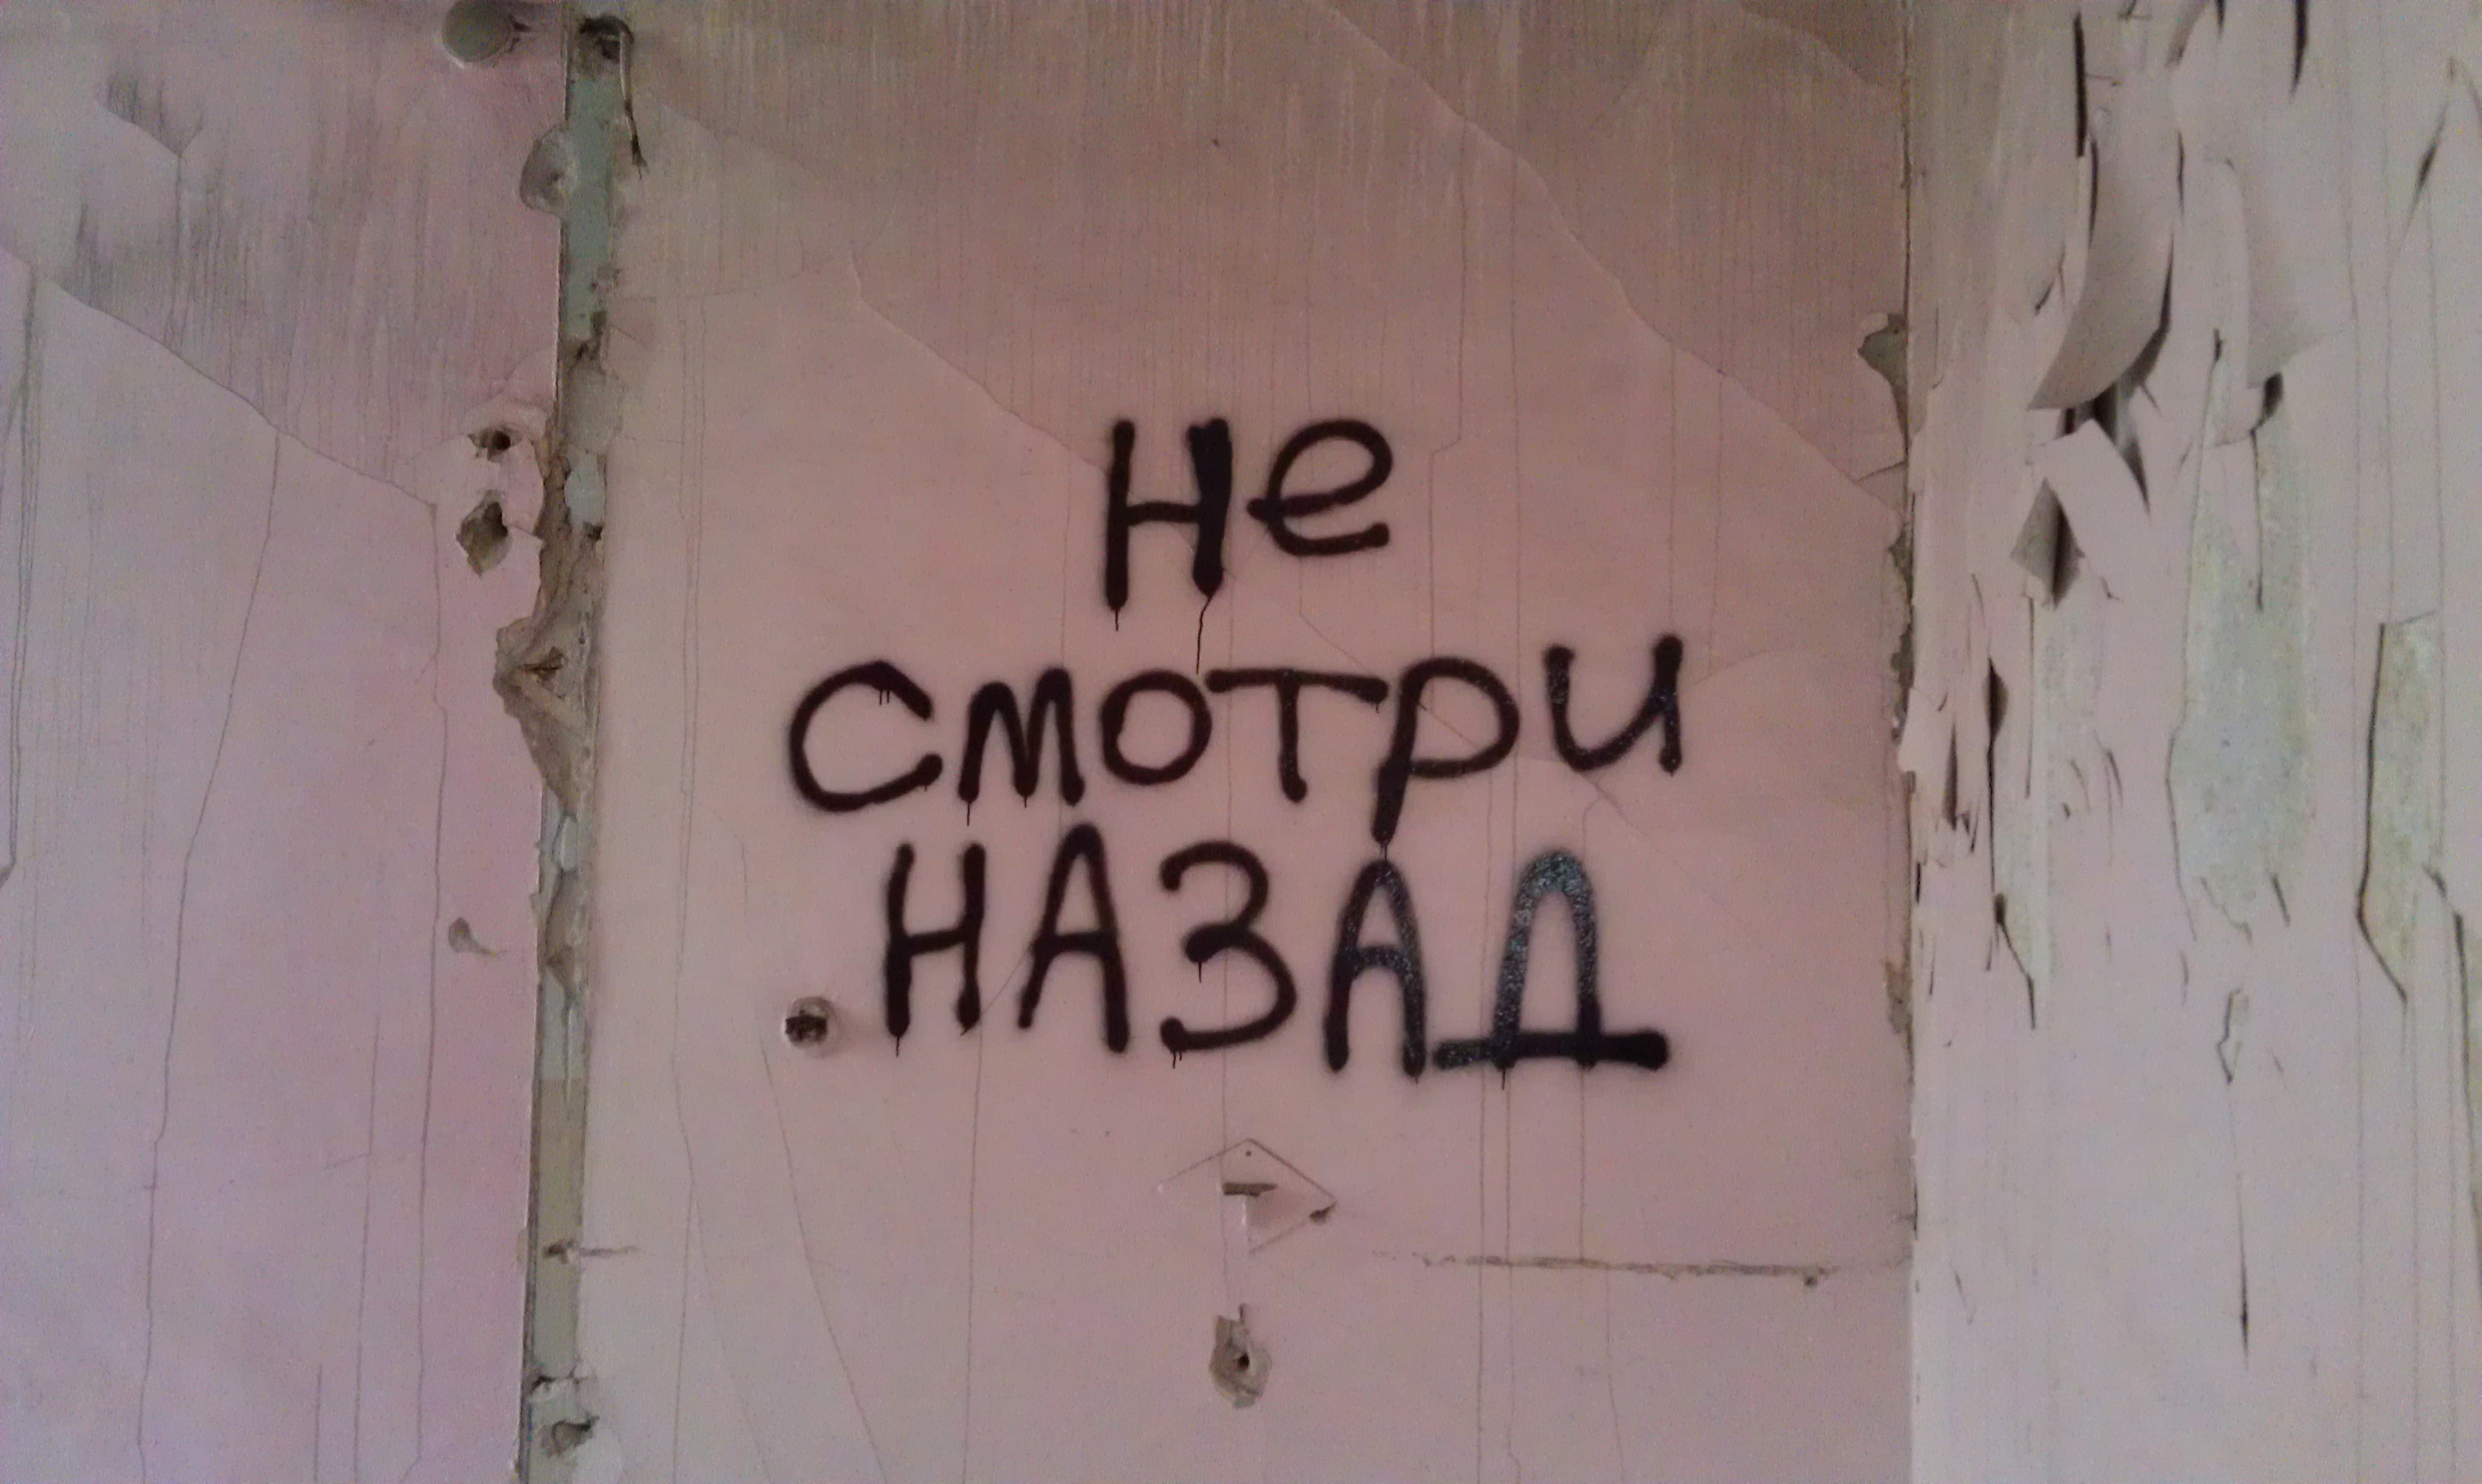 не
смотри
НАЗАД